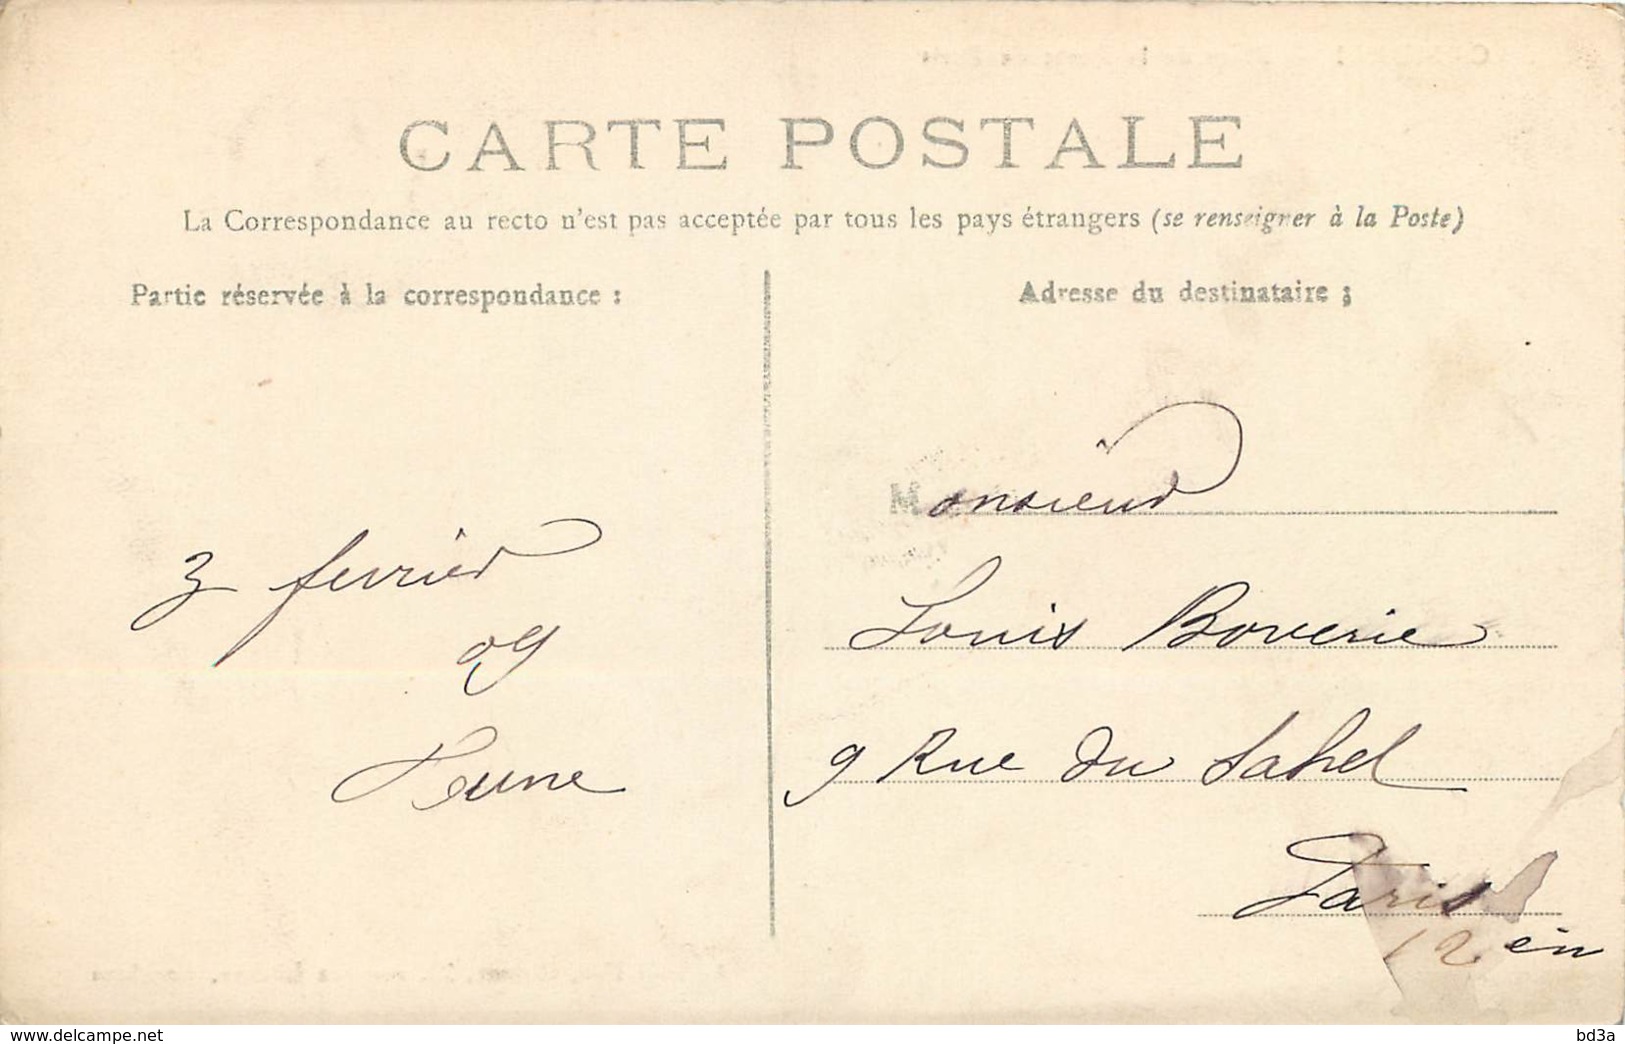 CARTE POSTALE
La Correspondance au recto n'est pas acceptée par tous les pays étrangers (se renseigner à la Poste)
Partie réservée à la correspondance :
Adresse du destinataire ;
3 fevrier
09
Monsieur
Louis Boverie
9 Rue du Sahel
Paris
12 èn
www.delcampe.net
bd3a